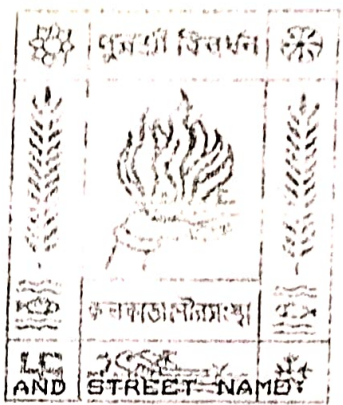 পুরশ্রী বিবর্ধন
কলকাতা পৌরসংস্থা
AND STREET NAME: